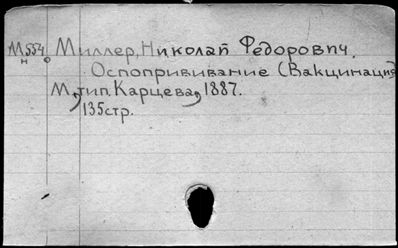 М554 Миллер, Николай Федорович
н
Оспопрививание (Вакцинация
М, тип. Карцева, 1887.
135стр.